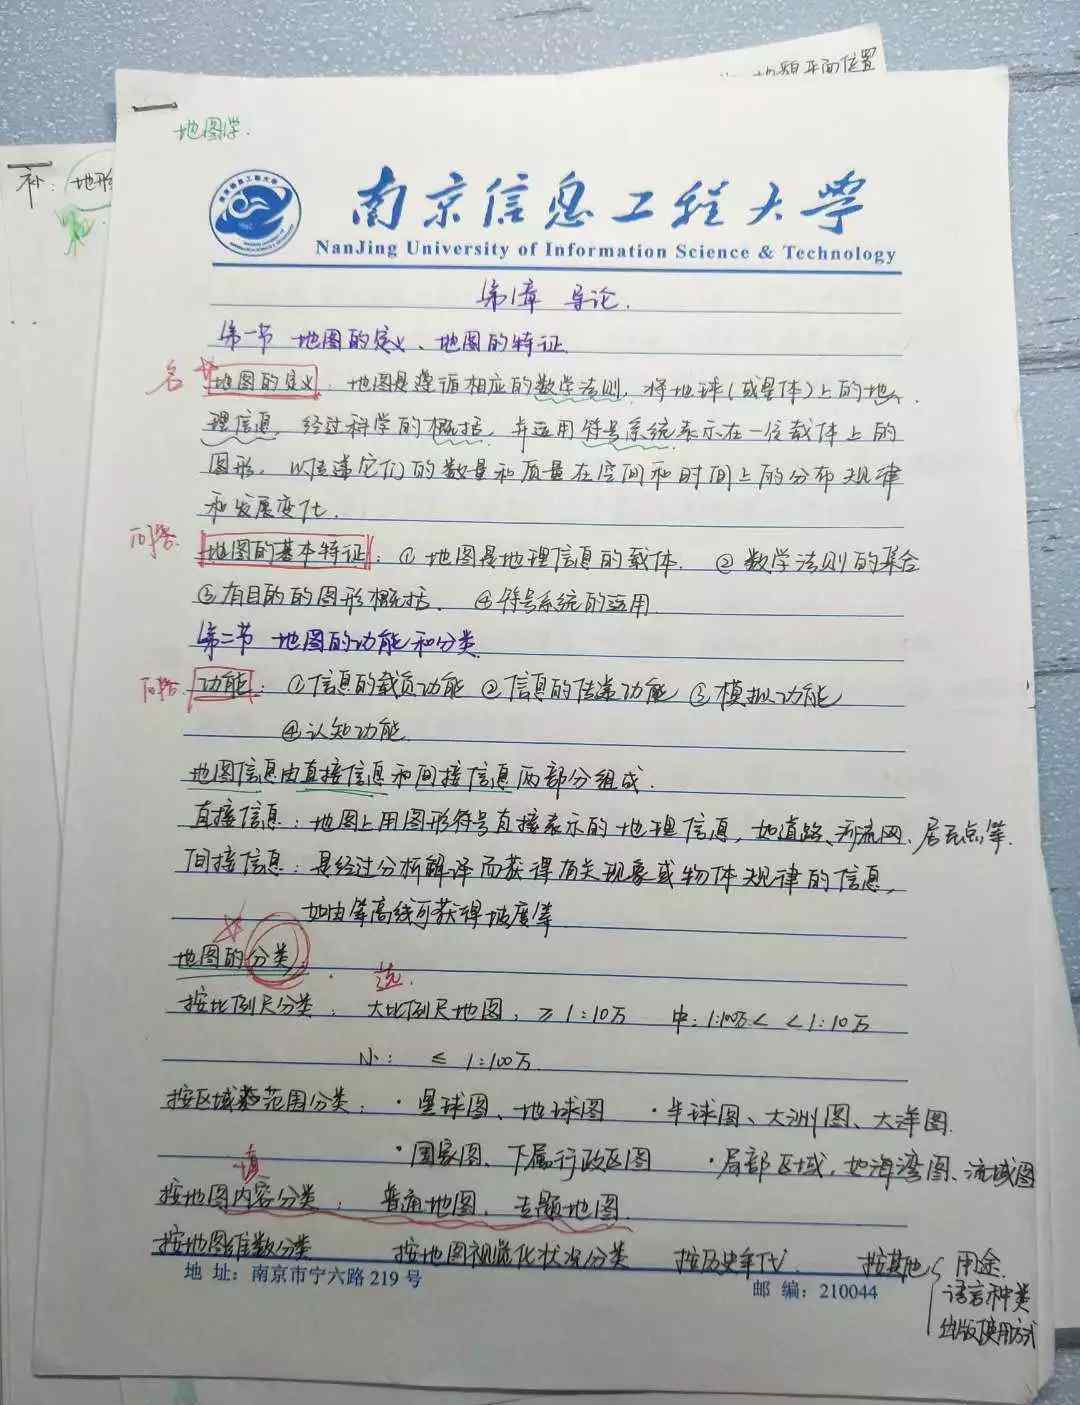 地图平面位置
地图学.
补: 地形
南京信息工程大学
NanJing University of Information Science & Technology
第1章 导论.
第一节 地图的定义、地图的特征
名 地图的定义: 地图是遵循相应的数学法则, 将地球(或星体)上的地
理信息, 经过科学的概括, 并运用符号系统表示在一位载体上的
图形, 以传递它们的数量和质量在空间和时间上的分布规律
和发展变化.
问答. 地图的基本特征: ① 地图是地理信息的载体. ② 数学法则的集合
③ 有目的的图形概括. ④ 符号系统的运用
第二节 地图的功能和分类
问答. 功能: ①信息的载负功能 ② 信息的传递功能 ③ 模拟功能
④认知功能.
地图信息由直接信息和间接信息两部分组成.
直接信息: 地图上用图形符号直接表示的地理信息, 如道路、河流网、居民点等.
间接信息: 是经过分析解译而获得有关现象或物体规律的信息,
如由等高线可获得坡度等
地图的分类:
选.
按比例尺分类: 大比例尺地图, ≥1:10万 中: 1:100万< <1:10万
小: ≤ 1:100万.
按区域范围分类: ·星球图、地球图 ·半球图、大洲图、大洋图.
·国家图、下属行政区图 ·局部区域, 如海湾图、流域图
填
按地图内容分类: 普通地图、专题地图.
按地图维数分类 按地图视觉化状况分类 按历史年代. 按其他 用途.
语言种类
出版使用方式
地 址: 南京市宁六路 219 号
邮 编: 210044